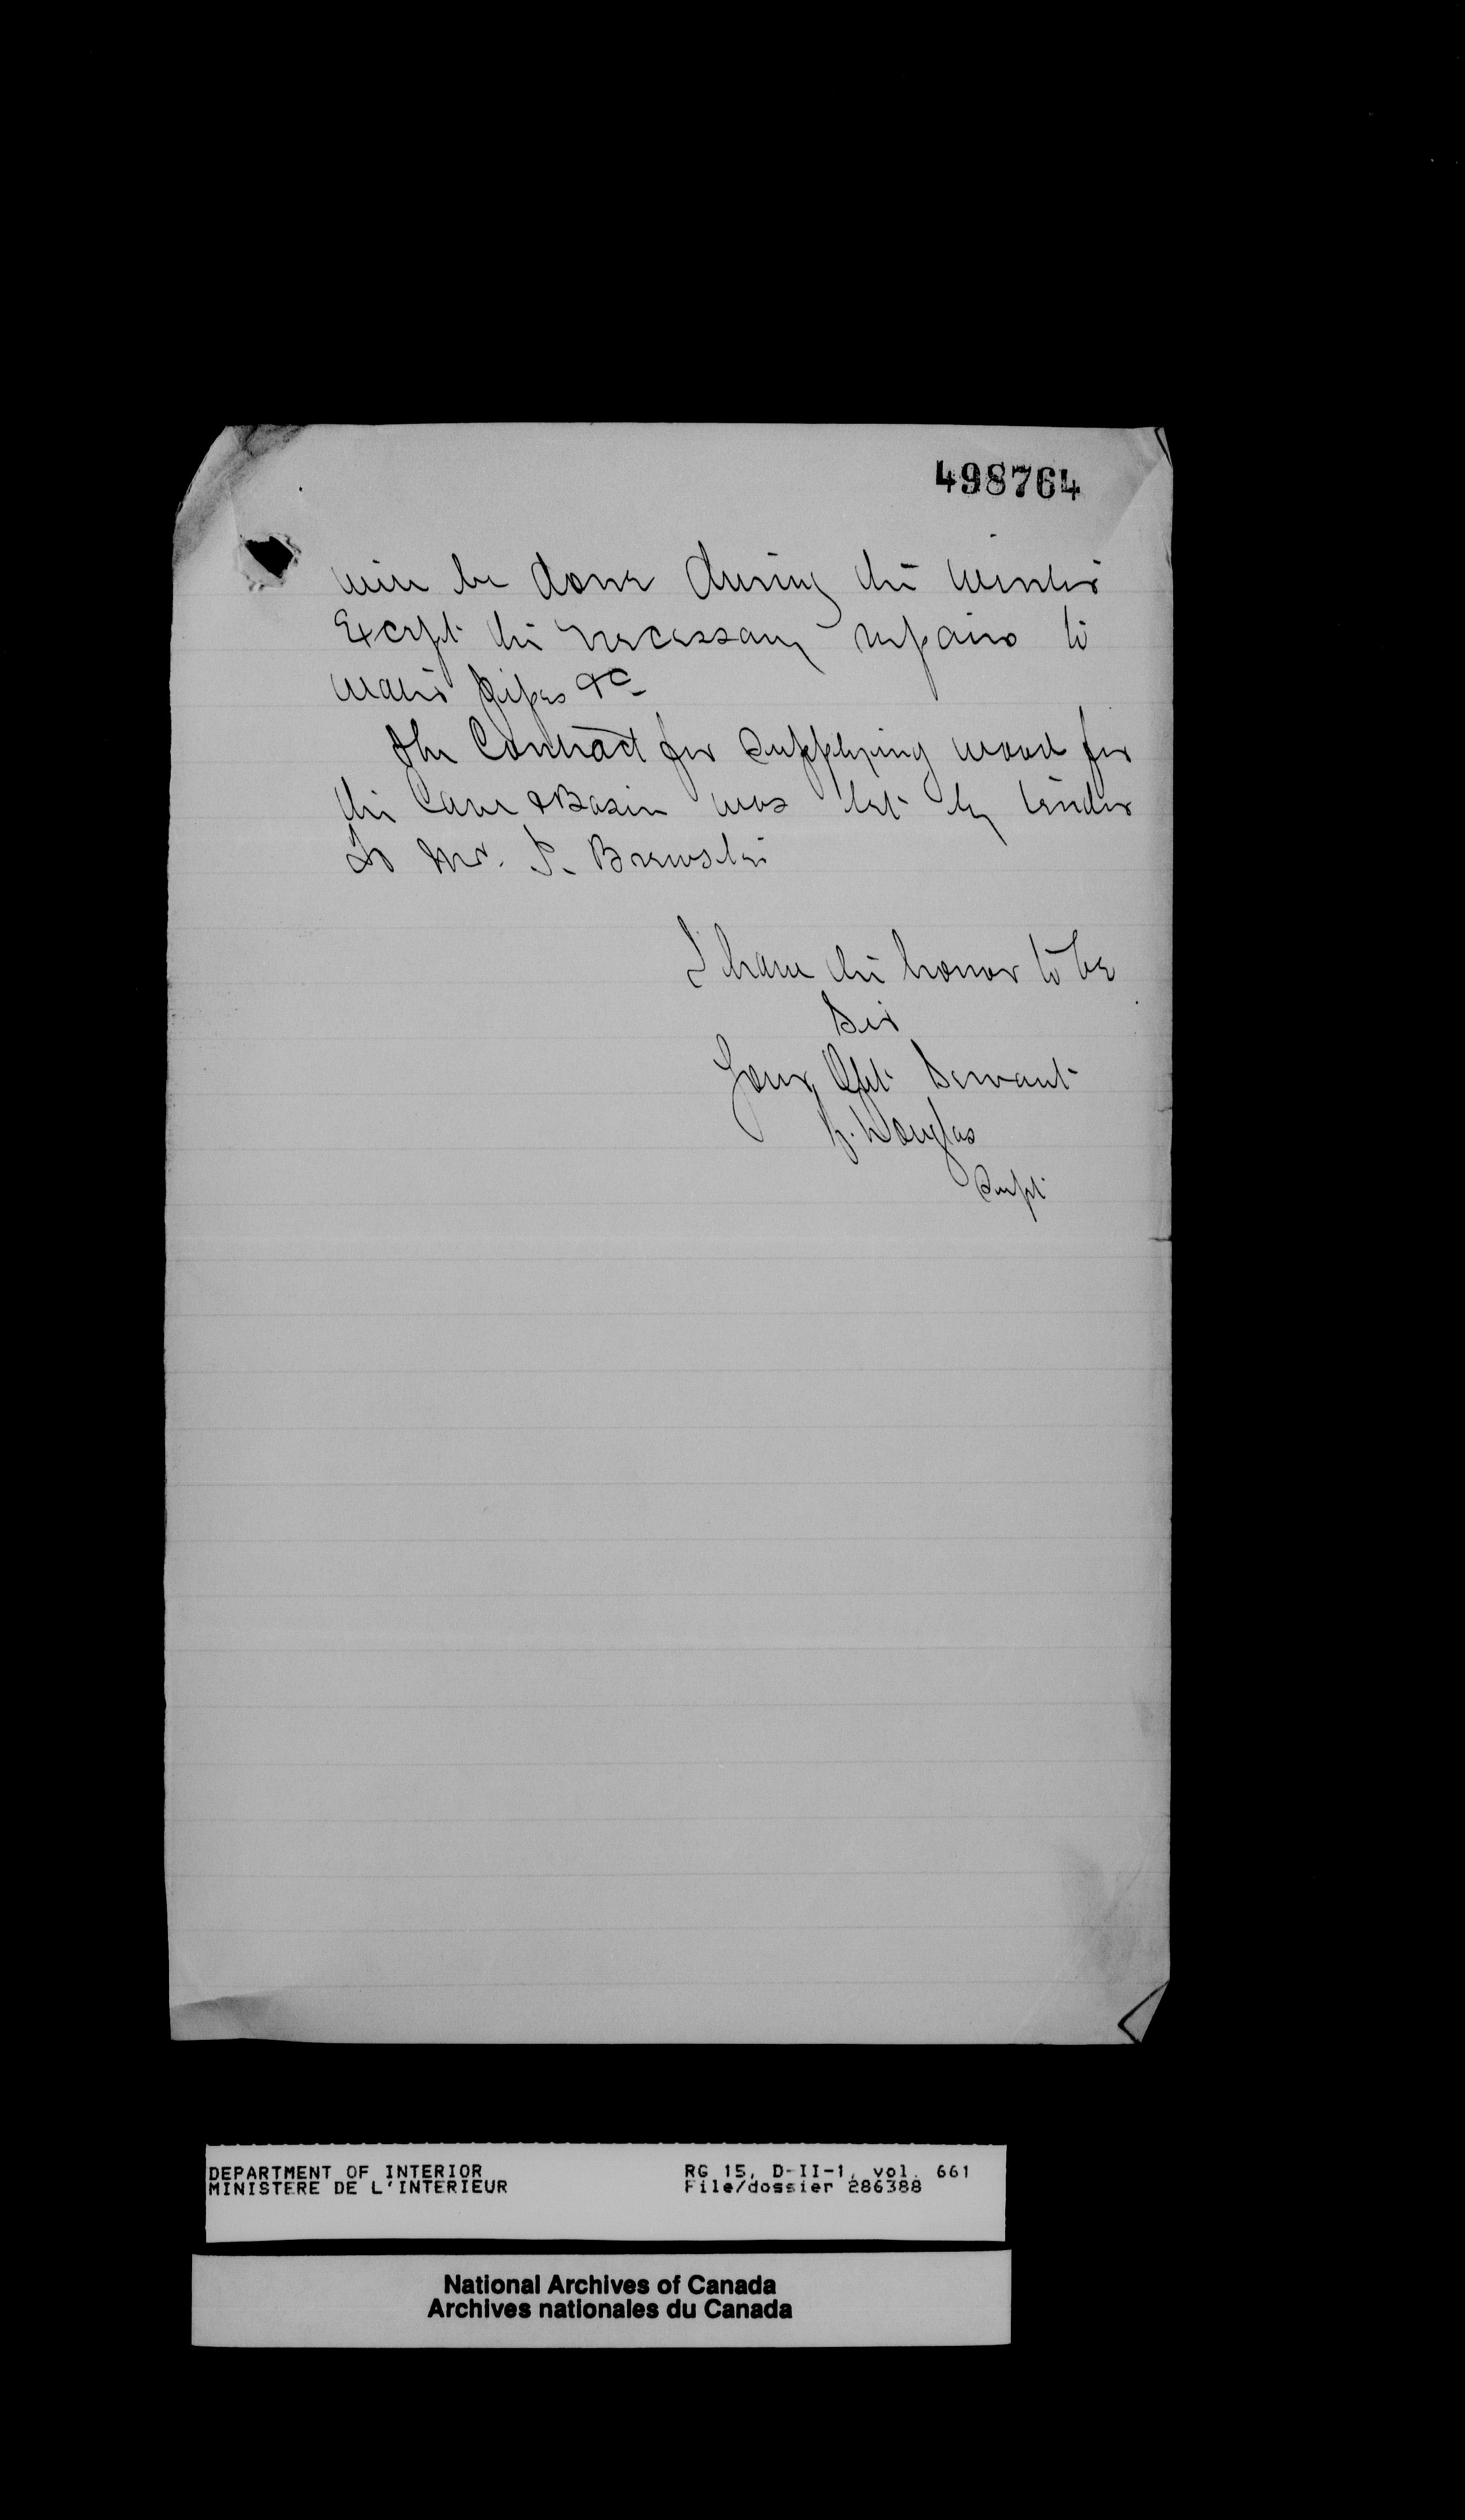 498764
will be done during the winter
Except the necessary repairs to
water pipes &c
The Contract for Supplying wood for
the Cave & Basin was let by tender
to Mr. J. Brewster
I have the honor to be
Sir
Your Obt Servant
H. Douglas
Supt
DEPARTMENT OF INTERIOR RG 15, D-II-1, vol. 661
MINISTERE DE L'INTERIEUR File/dossier 286388
National Archives of Canada
Archives nationales du Canada